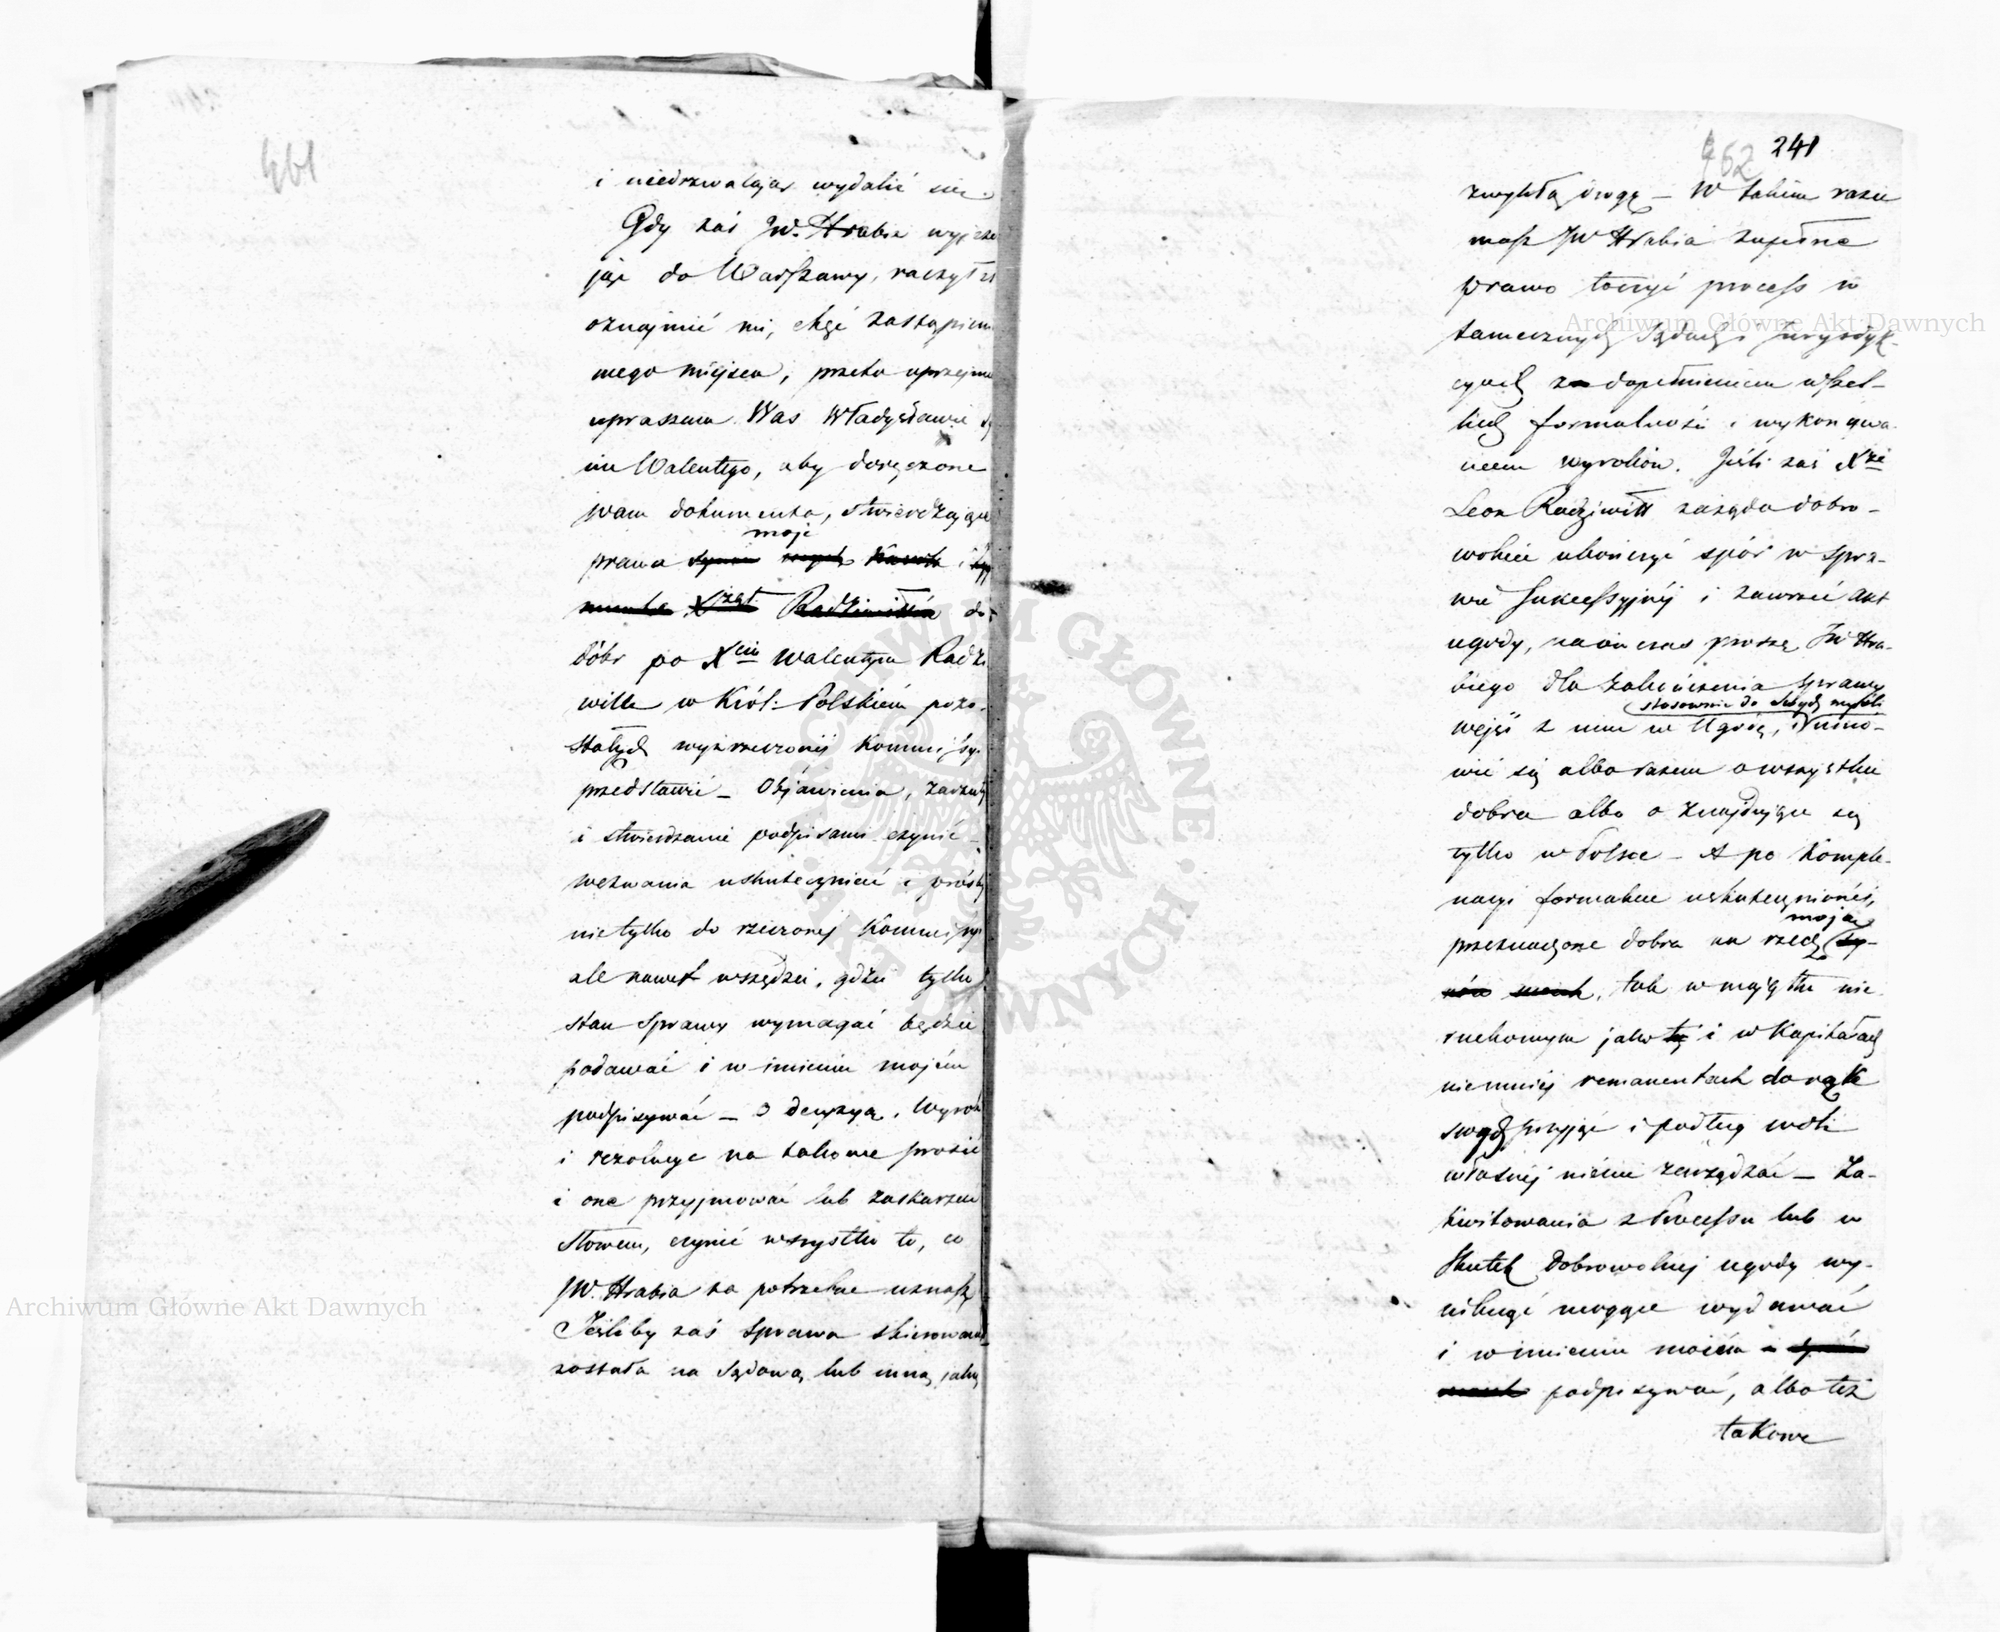 461
i niedozwalając wydalić się.
Gdy zaś JW. Hrabia wyjeżd
jąc do Warszawy, raczył
oznajmić mi, chęć zastąpieni
mego miejsca, przeto uprzejmie
upraszam Was Władysławie sy
nu Walentego, aby doręczone
wam dokumenta, stwierdzające
moje
prawa synów moich i
Xżąt Radziwiłłów do
dóbr po Xciu Walentym Radzi
wille w Król: Polskiém pozo-
stałych wyżrzeczonéj Kommissyi
przedstawić – Objawienia, zarzuty
i stwierdzanie podpisami czynić –
wezwania uskuteczniać i prośby
nietylko do rzeczonej Kommissyi
ale nawet wszędzie, gdzie tylko
stan sprawy wymagać będzie
podawać i w imieniu mojém
podpisywać – o decyzyą, wyrok
i rezolucye na takowe prosić
i one przyjmować lub zaskarzać
słowem, czynić wszystko to, co
JW. Hrabia za potrzebne uznasz
Jeśliby zaś sprawa skierowaną
została na sądową lub inną jaką
462 241
zwykłą drogę – W takim razie
masz JW Hrabia zupełne
prawo toczyć process w
tamecznych Sądach i Jurysdyk-
cyach z dopełnieniem wszel-
kich formalności i wykonywa-
niem wyroków. Jeśli zaś Xże
Leon Radziwiłł zażąda dobro-
wolnie ukończyć spór w spra-
wie sukcessyjnéj i zawrzeć akt
ugody, naówczas proszę JW Hra-
biego dla zakończenia sprawy
stosownie do Jego myśli
wejść z nim w Ugodę, i umó-
wić się albo razem o wszystkie
dobra albo o znajdujące się
tylko w Polsce – A po komple-
nacyi formalnie uskutecznionéj,
moją
przeznaczone dobra na rzecz sy-
nów moich, tak w majątku nie
ruchomym jako też i w Kapitałach
niemniéj remanentach do rąk
swych przyjąć i podług woli
własnéj niémi zarządzać – Za-
kwitowania z Processu lub w
skutek Dobrowolnej ugody wy-
niknąć mogące wydawać
i w imieniu moiém i synów
moich podpisywać, albo też
takowe
Archiwum Główne Akt Dawnych
Archiwum Główne Akt Dawnych
ARCHIWUM GŁÓWNE AKT DAWNYCH